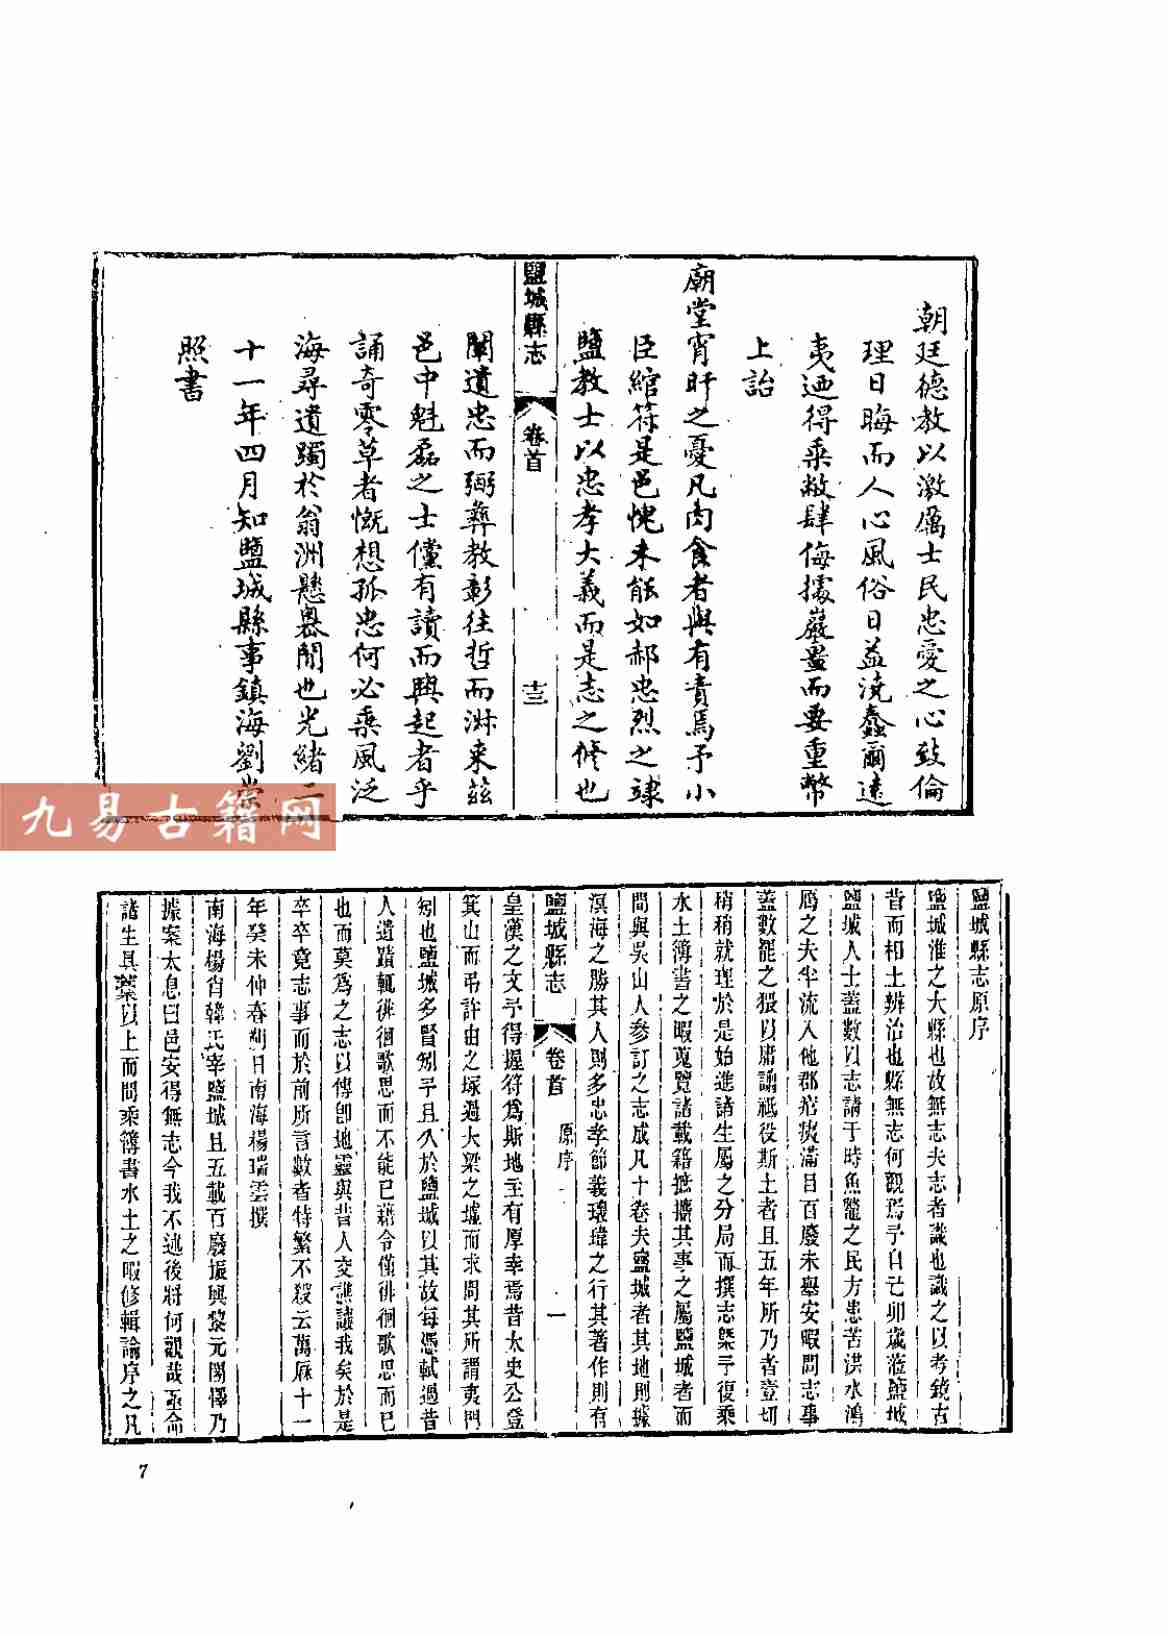 朝廷德教以激厲士民忠愛之心致倫
理日晦而人心風俗日益澆蠢爾遠
夷迺得乘敝肆侮據巖畺而要重幣
上詒
廟堂宵旰之憂凡肉食者與有責焉予小
臣綰符是邑愧未能如郝忠烈之隸
鹽教士以忠孝大義而是志之修也
鹽城縣志
卷首
十三
闡遺忠而弼彝教彰往哲而淑來茲
邑中魁磊之士儻有讀而興起者乎
誦奇零草者慨想孤忠何必乘風泛
海尋遺躅於翁洲懸嶴閒也光緒二
十一年四月知鹽城縣事鎮海劉崇
照書
九易古籍网
鹽城縣志原序
鹽城淮之大縣也故無志夫志者識也識之以考鏡古
昔而相土辨治也縣無志何觀焉予自己卯歲蒞鹽城
鹽城人士蓋數以志請于時魚鼈之民方患苦洪水鴻
鴈之夫半流入他郡滿目百廢未舉安暇問志事
蓋數罷之猥以庸譾祗役斯土者且五年所乃者壹切
稍稍就理於是始進諸生屬之分局而撰志槩予復乘
水土簿書之暇蒐覽諸載籍摭擴其事之屬鹽城者而
間與吳山人參訂之志成凡十卷夫鹽城者其地則據
溟海之勝其人則多忠孝節義瓌瑋之行其著作則有
鹽城縣志
卷首
原序
一
皇漢之文予得握符為斯地主有厚幸焉昔太史公登
箕山而弔許由之塚過大梁之墟而求問其所謂夷門
矧也鹽城多賢矧予且久於鹽城以其故每憑軾過昔
人遺蹟輒徘徊歌思而不能已藉令僅徘徊歌思而已
也而莫為之志以傳卽地靈與昔人交譙讓我矣於是
卒卒竟志事而於前所言數者特繁不殺云萬厤十一
年癸未仲春朔日南海楊瑞雲撰
南海楊肖韓氏宰鹽城且五載百廢振興黎元闓懌乃
據案太息曰邑安得無志今我不述後將何觀哉亟命
諸生具藁以上而間乘簿書水土之暇修輯論序之凡
7